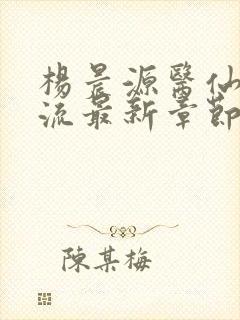 楊晨源醫仙
流最新章節
陳某梅